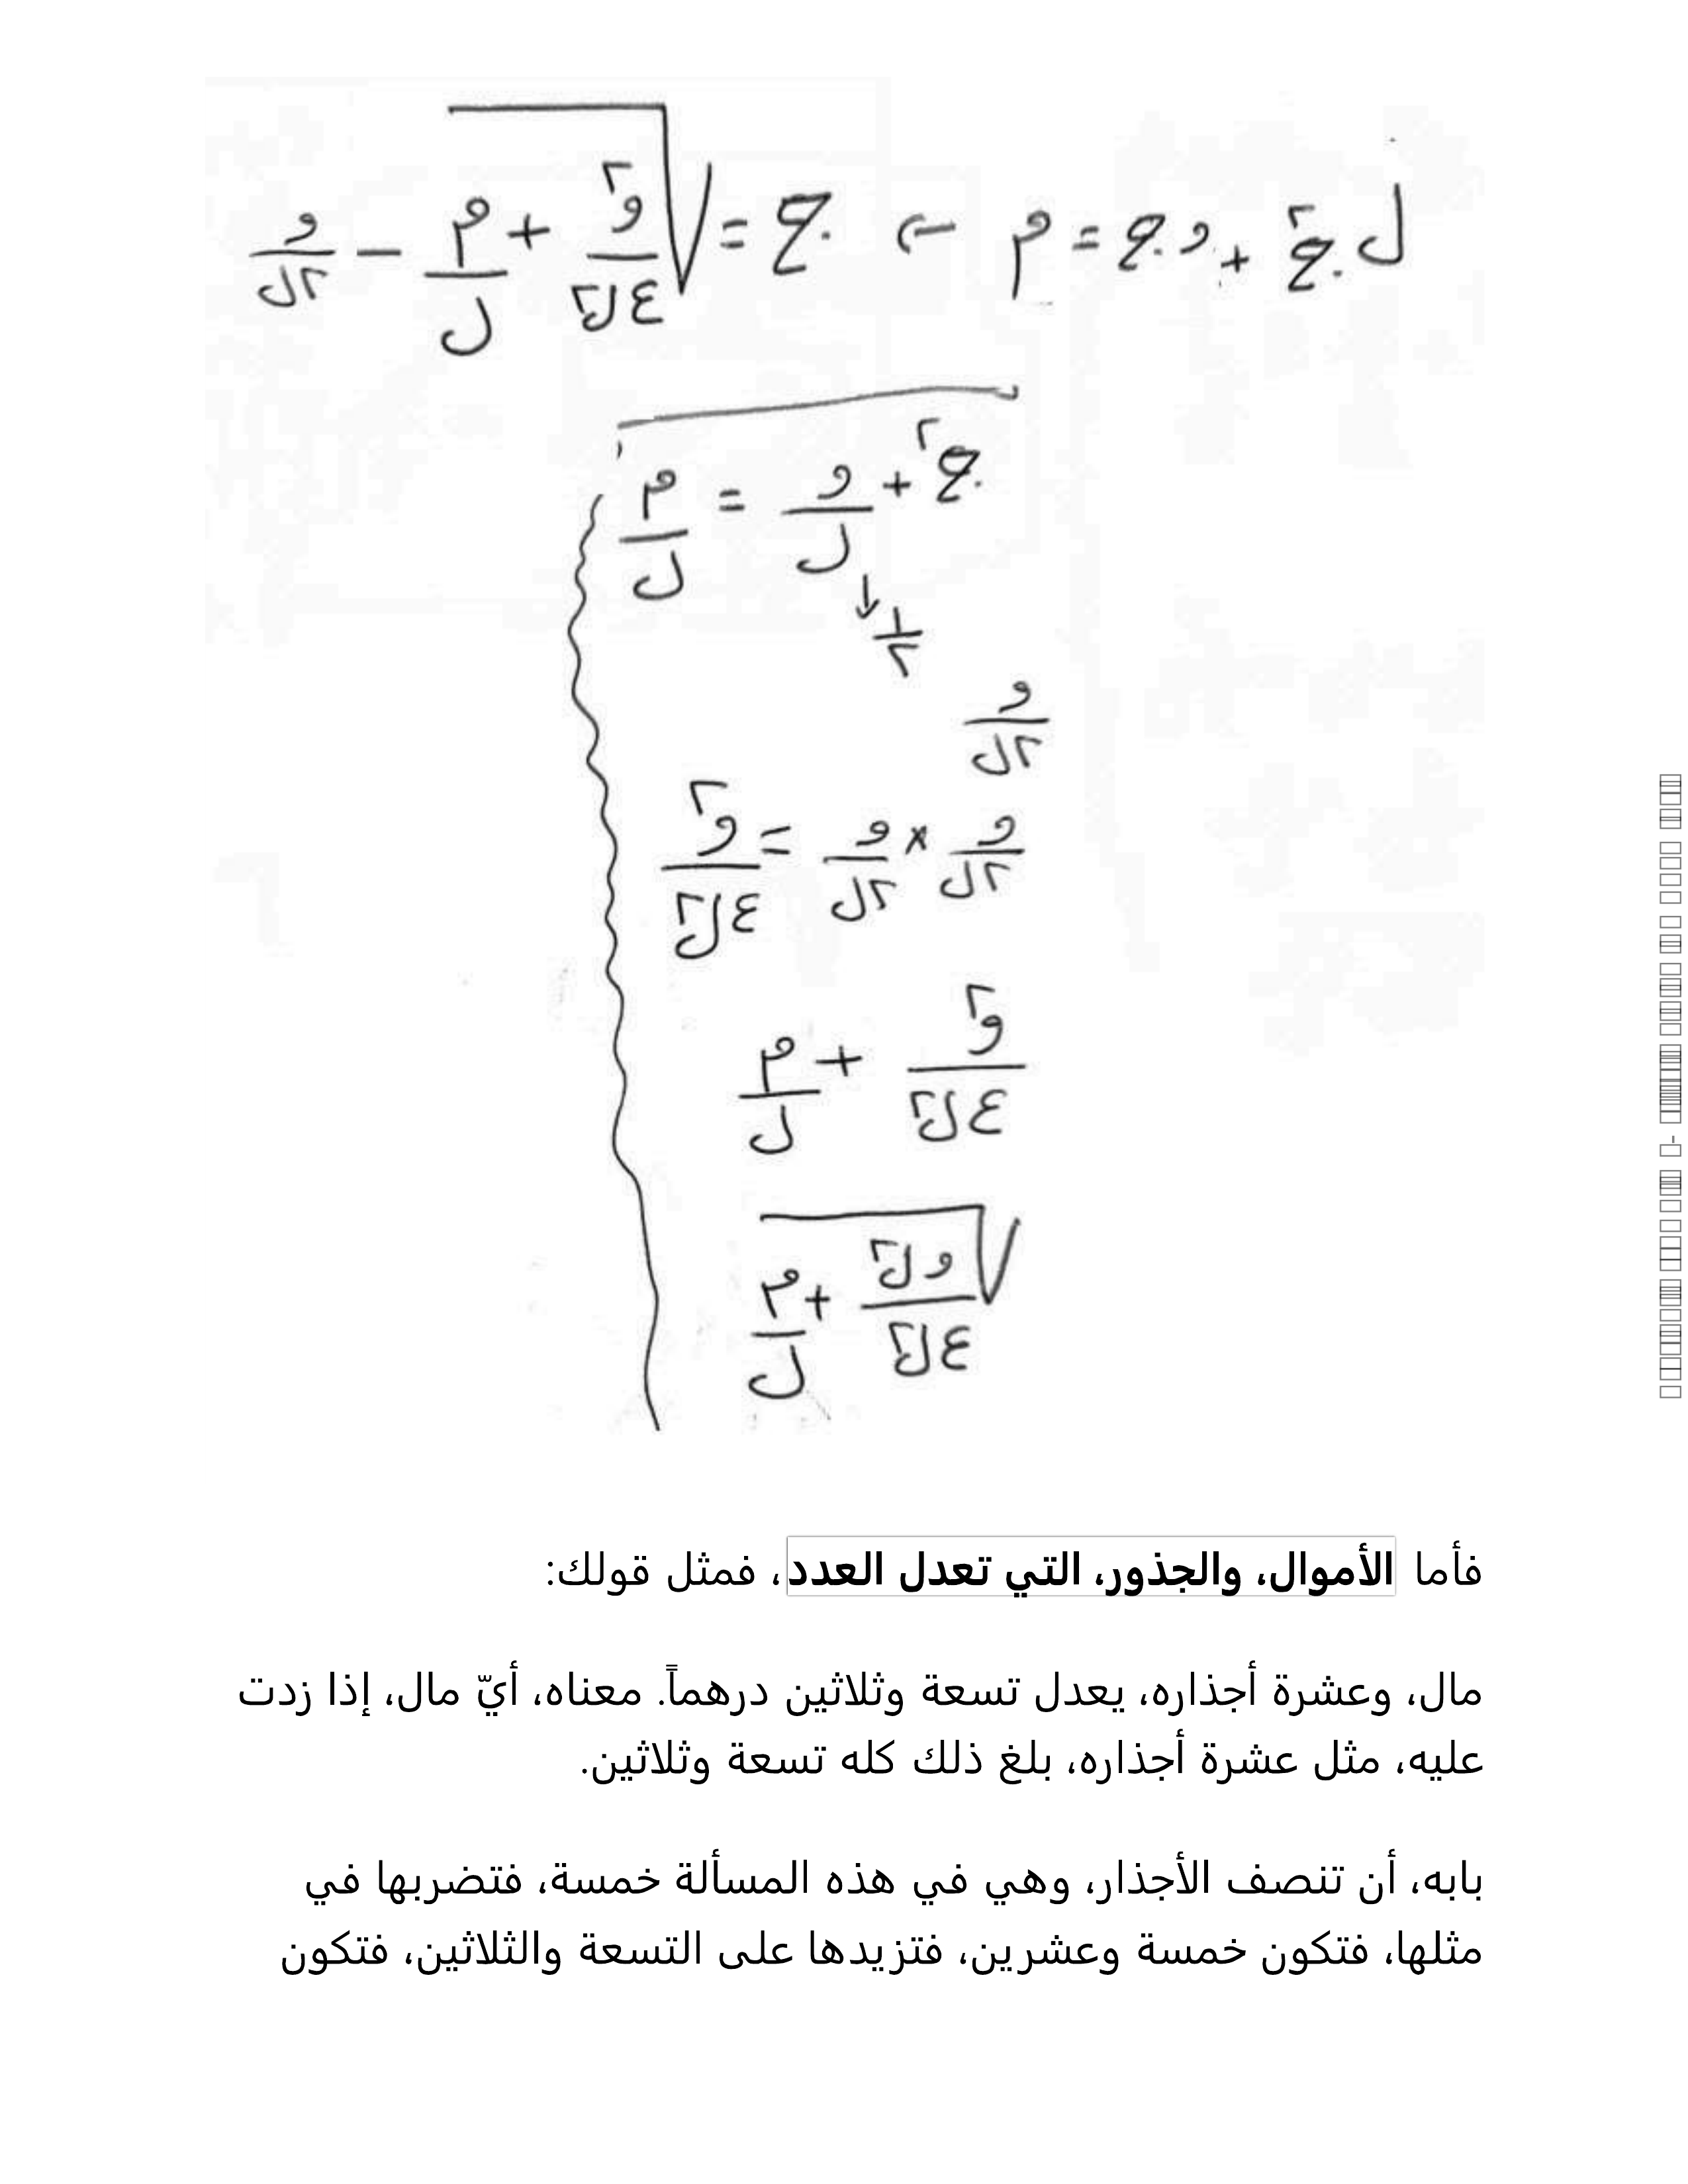 ل ج² + و ج = م ← ج = √(و²/٤ل² + م/ل) − و/٢ل
ج² + و/ل = م/ل
↓ ١/٢
و/٢ل
و/٢ل × و/٢ل = و²/٤ل²
و²/٤ل² + م/ل
√(و ل²/٤ل² + م/ل)
فأما الأموال، والجذور، التي تعدل العدد، فمثل قولك:
مال، وعشرة أجذاره، يعدل تسعة وثلاثين درهماً. معناه، أيّ مال، إذا زدت
عليه، مثل عشرة أجذاره، بلغ ذلك كله تسعة وثلاثين.
بابه، أن تنصف الأجذار، وهي في هذه المسألة خمسة، فتضربها في
مثلها، فتكون خمسة وعشرين، فتزيدها على التسعة والثلاثين، فتكون